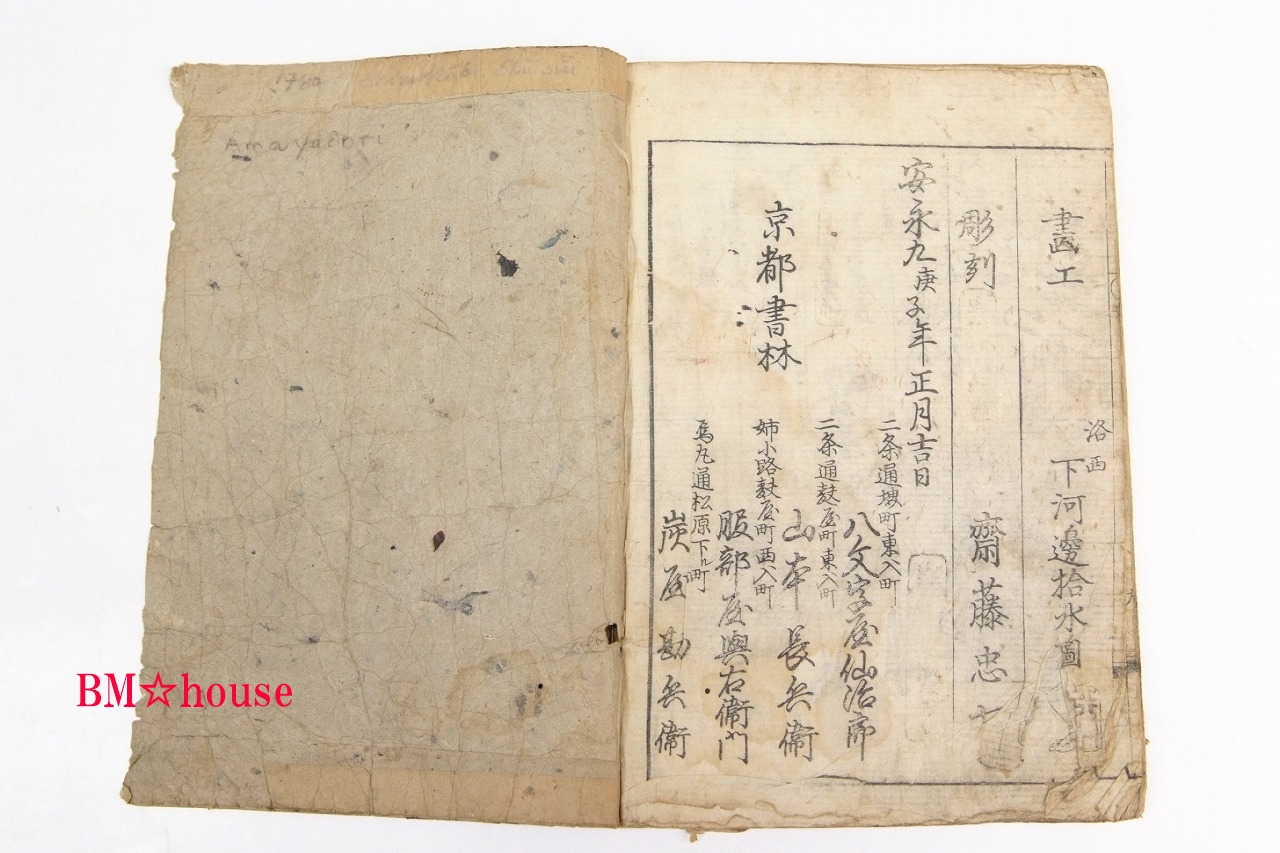 1780
Shimokobe Shūsui
Amayadori
畫工
洛西
下河邊拾水圖
彫刻
齋藤忠七
安永九庚子年正月吉日
京都書林
二条通堺町東入町
八文字屋仙治郎
二条通麩屋町東入町
山本長兵衛
姉小路麩屋町西入町
服部屋與右衛門
烏丸通松原下ル町
炭屋勘兵衛
九
BM☆house